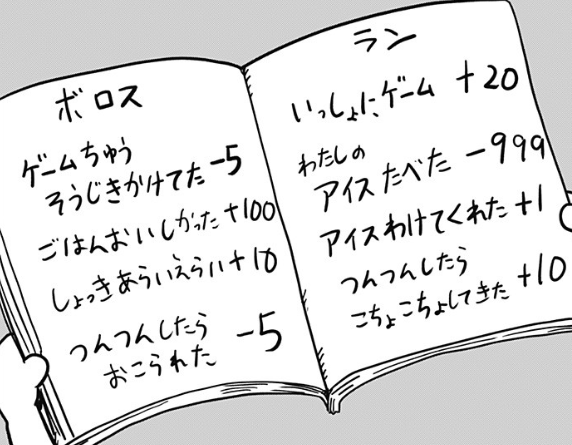 ボロス
ゲームちゅう
そうじきかけてた -5
ごはんおいしかった +100
しょっきあらいえらい +10
つんつんしたら
おこられた -5
ラン
いっしょに、ゲーム +20
わたしの
アイスたべた -999
アイスわけてくれた +1
つんつんしたら
こちょこちょしてきた +10